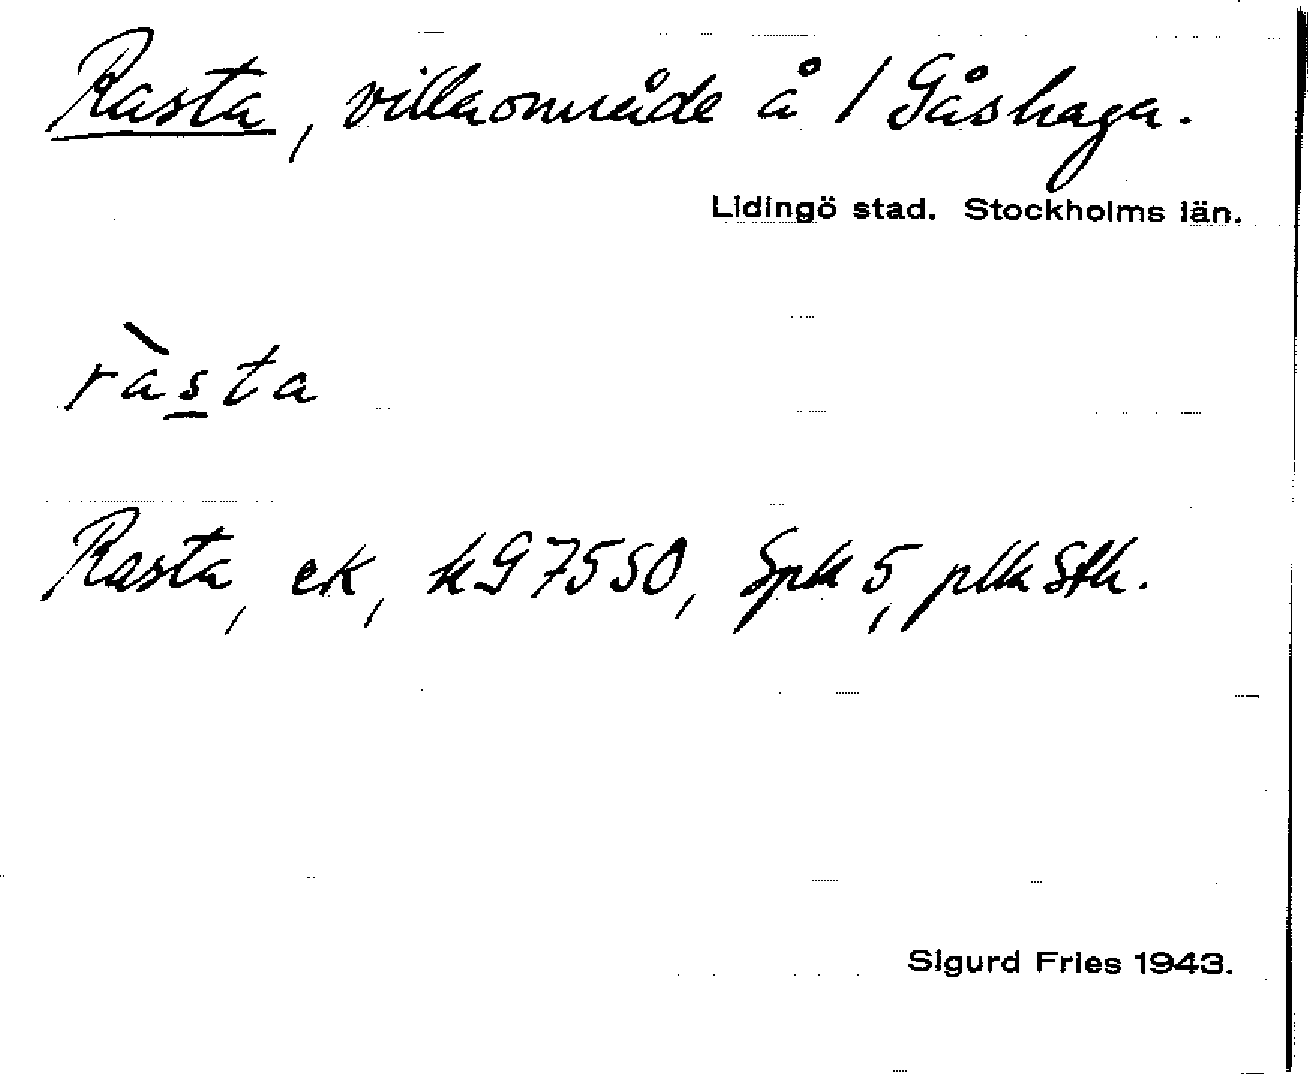 Rasta, villaområde å 1 Gåshaga.
Lidingö stad. Stockholms län.
ràsta
Rasta, ek, kG 7550, Spk 5, plk Sth.
Sigurd Fries 1943.